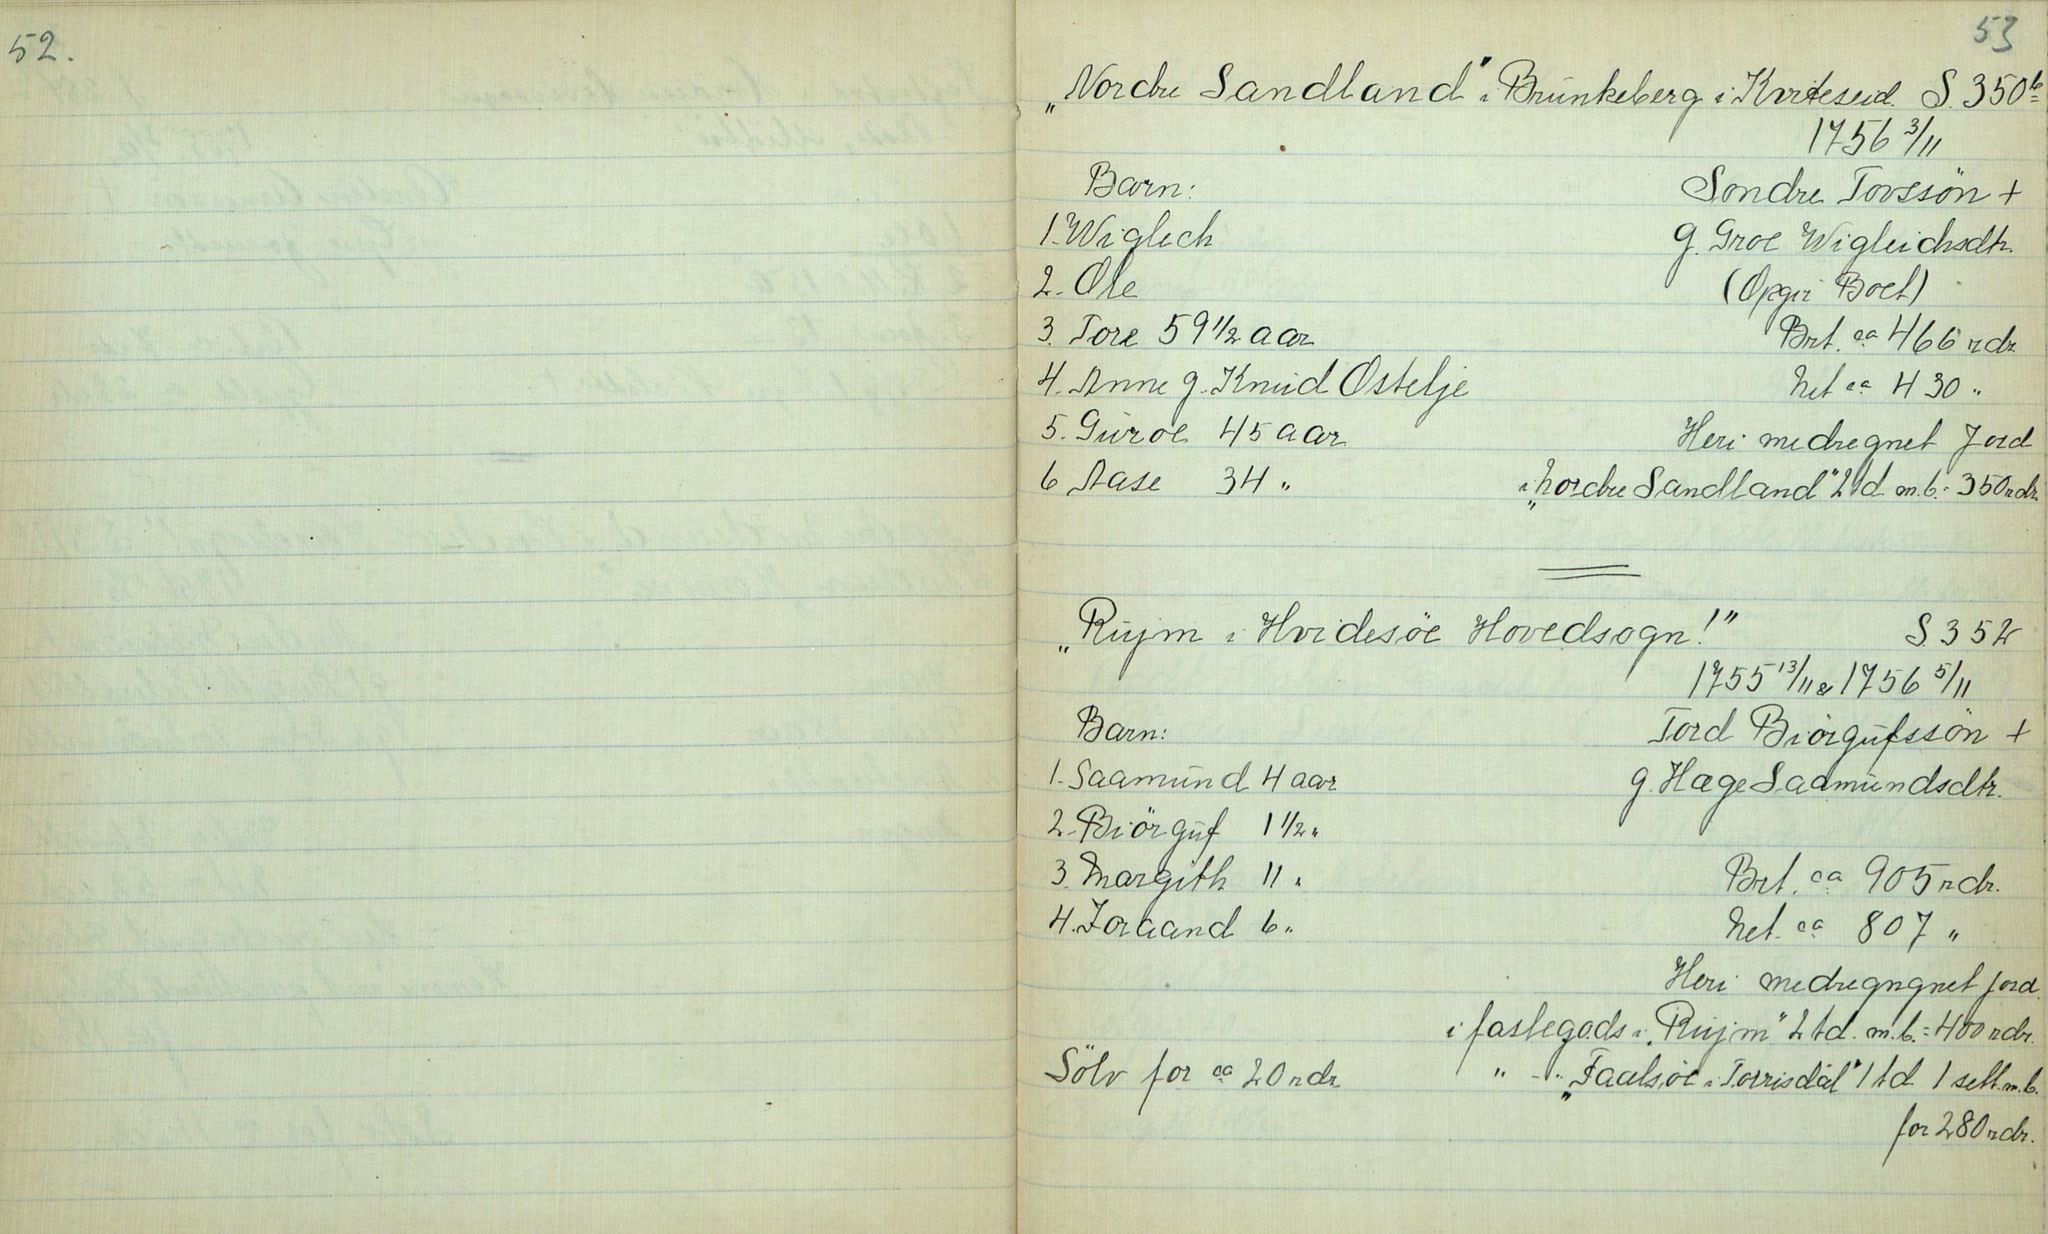 52.
53
„Nordre Sandland" i Brunkeberg i Kviteseid. S. 350b
1756 3/11
Barn: Sondre Tovssön +
1. Wiglech g. Groe Wigleichsdtr.
2. Ole (Opgir Boet)
3. Tore 59 1/2 aar Brt. ca 466 rdr.
4. Anne g. Knud Ostelje Net ca 430 „
5. Guroe 45 aar Heri medregnet Jord
6 Aase 34 „ i „Nordre Sandland" 2 td. m.b. = 350 rdr.
„Rujm i Hvidesöe Hovedsogn!" S. 352
1755 13/11 & 1756 5/11
Barn: Tord Biörgufssön +
1. Saamund 4 aar g. Hæge Saamundsdtr.
2. Biörguf 1 1/2 „
3. Margith 11 „ Brt. ca 905 rdr.
4. Joraand 6 „ Net. ca 807 „
Heri medregngnet jord
i fastegods i „Rujm" 2 td. m.b. = 400 rdr.
Sölv for ca 20 rdr. „ - „ „Taalsöe i Torrisdal" 1 td. 1 sett. m.b.
for 280 rdr.